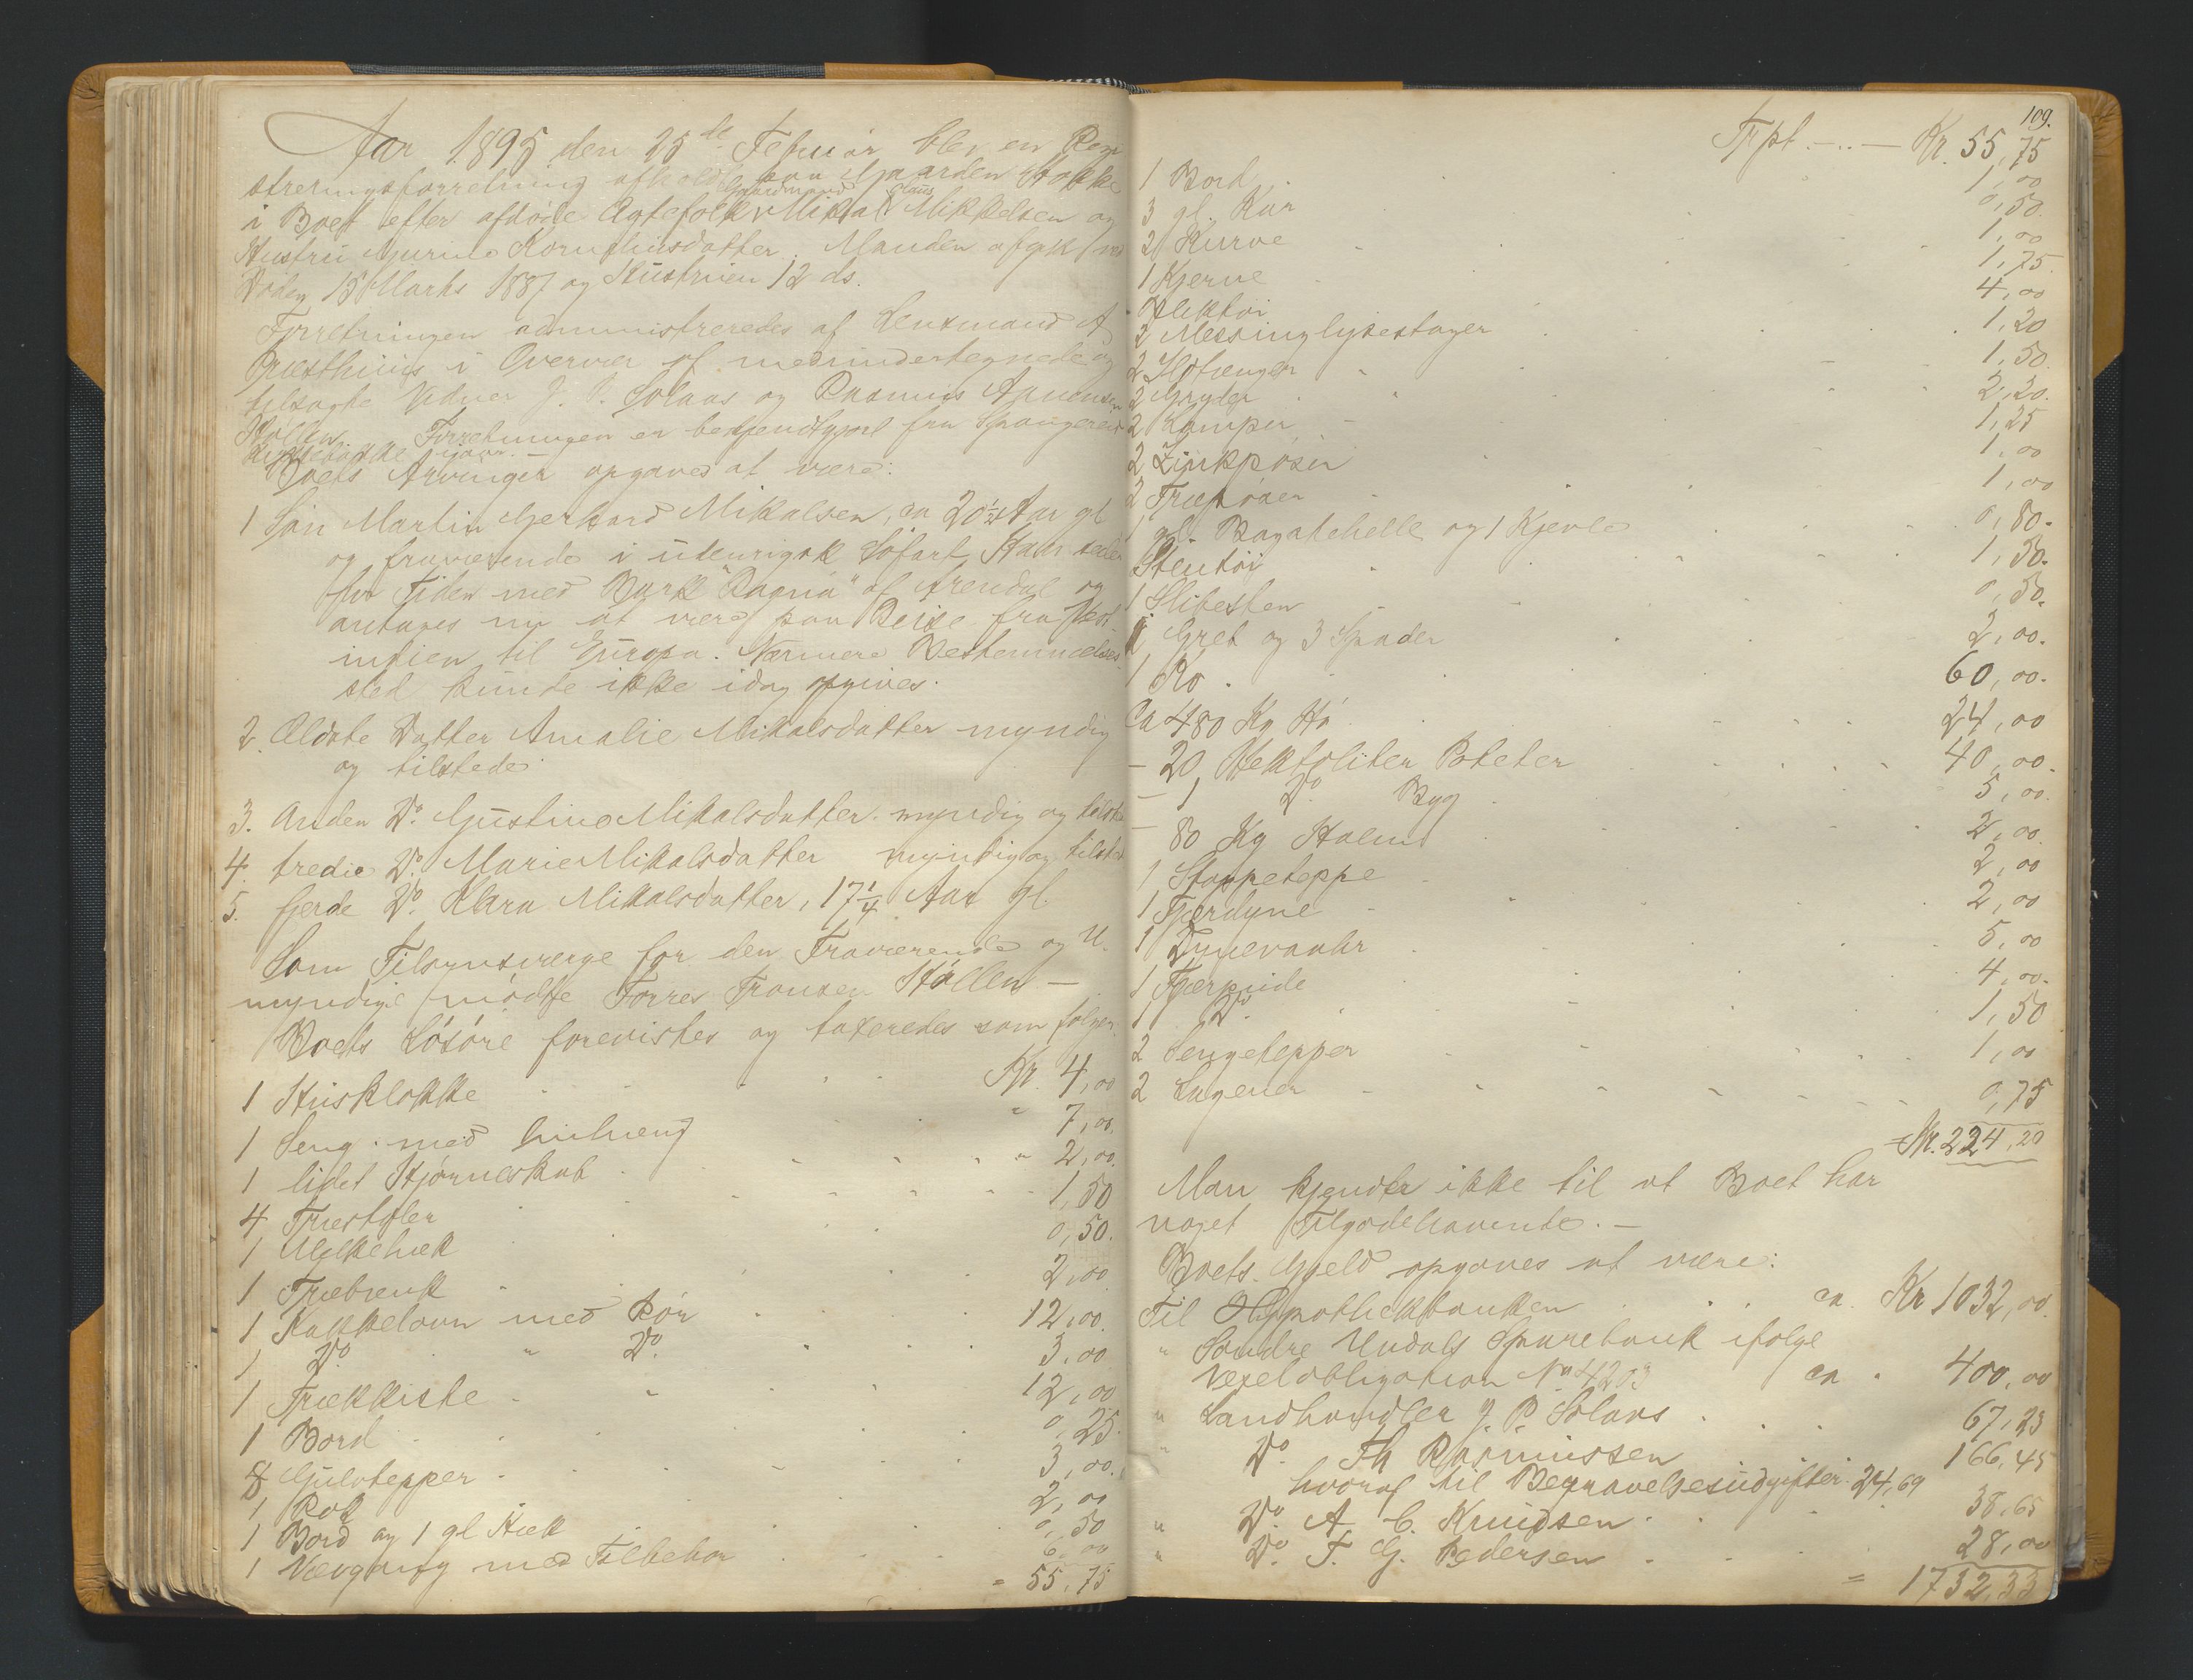 Aar 1895 den 25de Februar blev en Regi
streringsforretning afholdt paa Gaarden Stokke
Gaardmand Claus
i Boet efter afdøde Ægtefolk Mikal Mikkelsen og
Hustru Gurine Korneliusdatter. Manden afgik ved
Døden 15 Marts 1887 og Hustruen 12 ds.
Forretningen administreredes af Lensmand A
Præsthuus i Overvær af medundertegnede og
tilsagte Vidner J. P. Solaas og Rasmus Aanensen
Stallen. Forretningen er bekjendtgjort fra Spangereid
Kirkebakke
Boets Arvinger opgaves at være:
1 Søn Martin Gerhard Mikalsen, ca 20½ Aar gl
og fraværende i udenrigsk Søfart, Han seiler
for Tiden med Bark "Ragna" af Arendal og
antages nu at være paa Reise fra Vest
indien til Europa. Nærmere Bestemmelses
sted kunde ikke idag opgives.
2. Ældste Datter Amalie Mikalsdatter myndig
og tilstede
3. Anden Do. Gustine Mikalsdatter myndig og tilstede
4. tredie Do. Marie Mikalsdatter myndig og tilsted
5. fjerde Do. Klara Mikalsdatter, 17¼ Aar gl.
Som Tilsynsværge for den Fraværende og U.
myndige mødte Torres Fransen Stallen —
Boets Løsøre forevistes og taxeredes som følger.
1 Husklokke Kr. 4,00
1 Seng med Omhæng " 7,00.
1 lidet Hjørneskab " 2,00.
4 Træstoler 1,50
1 Melkehæk 0,50.
1 Træbænk 2,00
1 Kakkelovn med Rør 12,00.
1 Do. " Do. 3,00
1 Trækkiste 12,00
1 Bord 0,25.
8 Gulvtepper 3,00.
1 Rok 2,00
1 Bord og 1 gl Hæk 0,50
1 Vævgang med Tilbehør 6,00
= 55,75
109.
Trpt. — Kr. 55,75
1 Bord 1,00
3 gl. Kar 0,50.
2 Kurve 1,00
1 Kjerne 1,75.
Blektøi 4,00
2 Messinglysestager 1,20
2 Ildtænger 1,50.
2 Gryder 2,20.
2 Lamper 1,25
2 Zinkpøser 1,00
2 Træpøser 1,00
1 gl. Bagstehelle og 1 Kjevle 0,80.
Stentøi 1,50.
1 Slibesten 0,50.
1 Gret og 3 Spader 2,00.
1 Ko 60,00.
Ca 480 Kg Hø 24,00
— 20 Hektoliter Poteter 40,00.
— 1 Do. Byg 5,00.
— 80 Kg Halm 2,00.
1 Stoppeteppe 2,00
1 Fjærdyne 2,00
1 Dynevaahr 5,00
1 Fjærpude 4,00.
1 Do. 1,50
2 Sengetepper 1,00
2 Lagener 0,75
= Kr. 224,20
Man kjender ikke til at Boet har
noget Tilgodehavende. —
Boets Gjeld opgaves at være:
Til Hypothekbanken ca. Kr 1032,00.
" Søndre Undals Sparebank ifølge
Vexelobligation No 4203 ca " 400,00
" Landhandler J. P. Solaas 67,23
" Do. Th Rasmussen 166,45
hvoraf til Begravelsesudgifter 24,69
" Do. A. C. Knudsen 38,65
" Do. F. G. Pedersen 28,00
= 1732,33